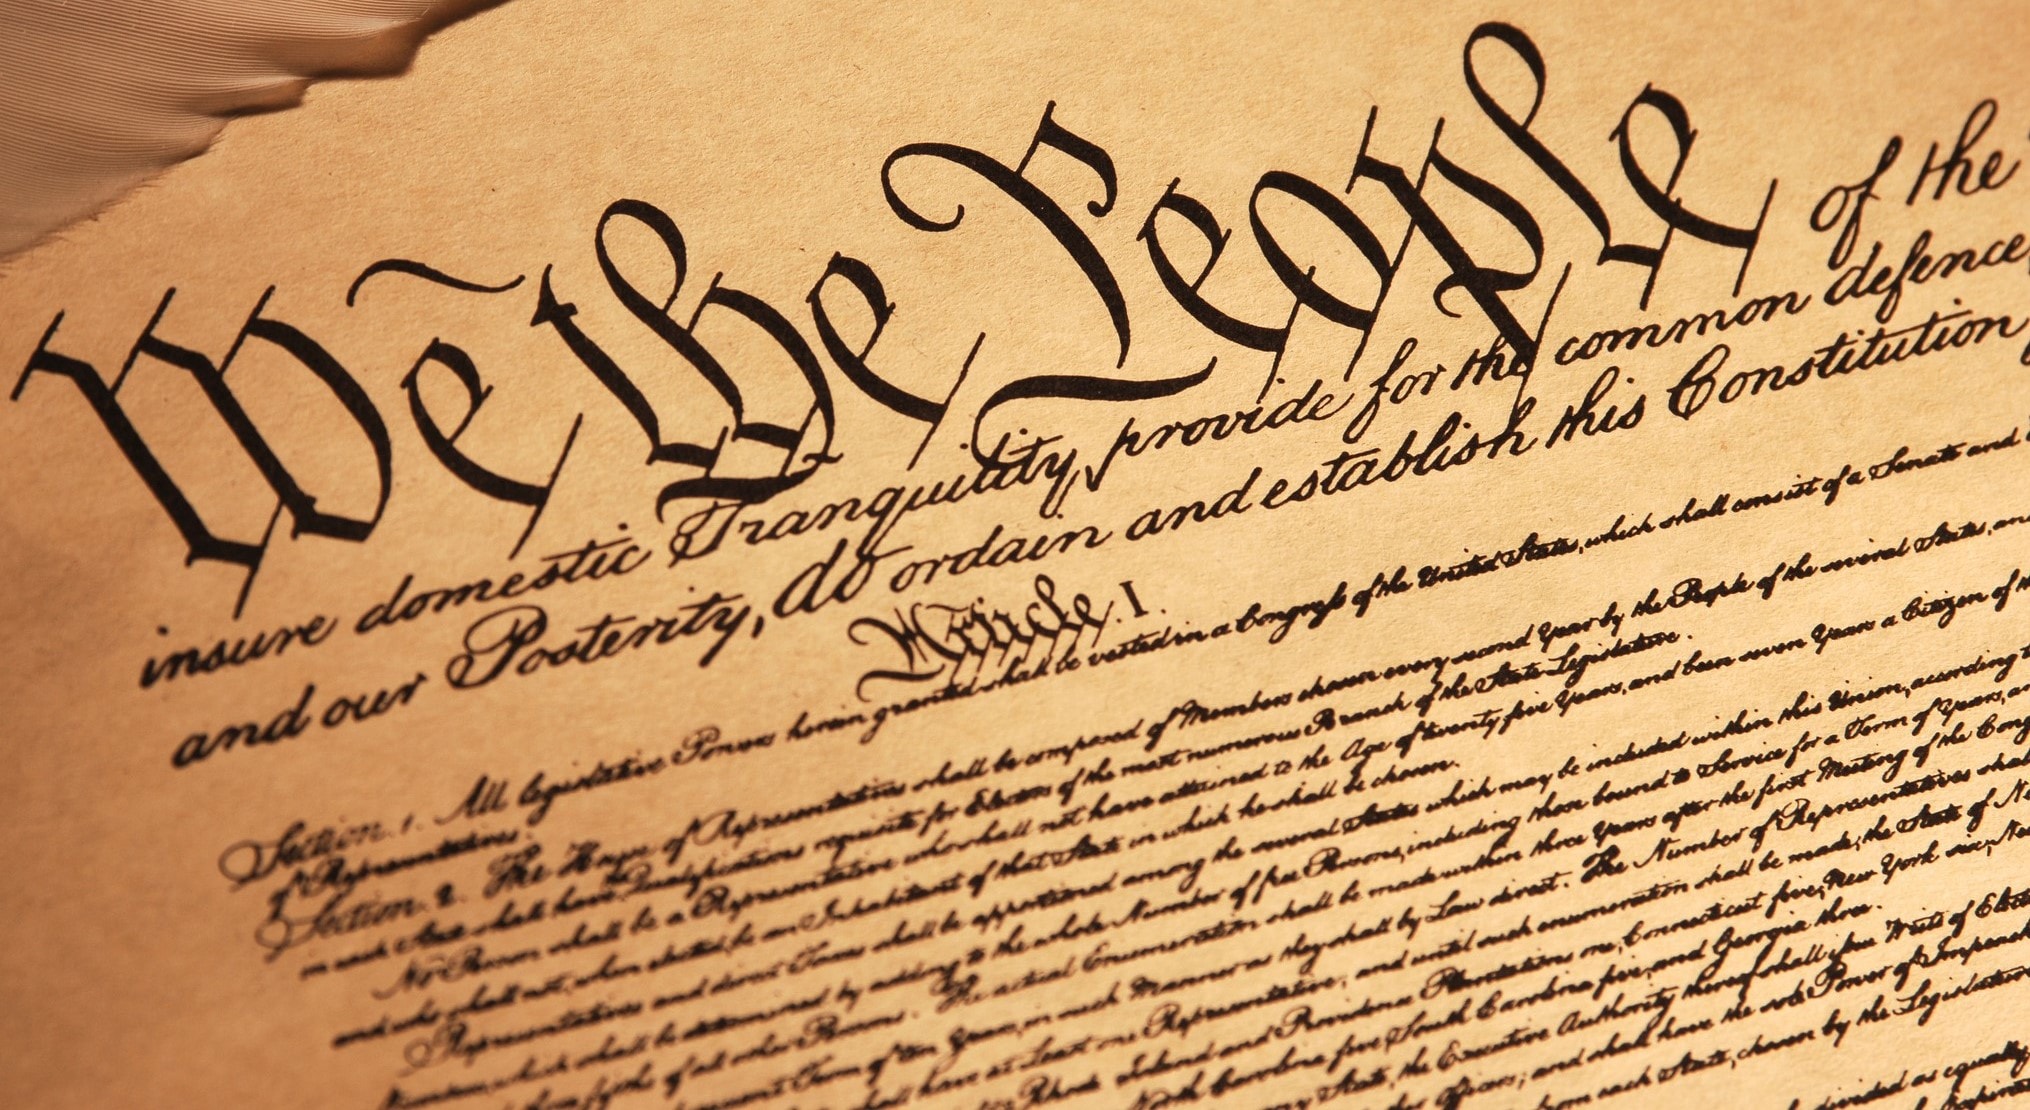 We the People of the
insure domestic Tranquility, provide for the common defence,
and our Posterity, do ordain and establish this Constitution
Article. I.
Section. 1. All legislative Powers herein granted shall be vested in a Congress of the United States, which shall consist of a Senate and
of Representatives.
Section. 2. The House of Representatives shall be composed of Members chosen every second Year by the People of the several States, and
in each State shall have Qualifications requisite for Electors of the most numerous Branch of the State Legislature.
No Person shall be a Representative who shall not have attained to the Age of twenty five Years, and been seven Years a Citizen of the
and who shall not, when elected, be an Inhabitant of that State in which he shall be chosen.
Representatives and direct Taxes shall be apportioned among the several States which may be included within this Union, according to
Numbers, which shall be determined by adding to the whole Number of free Persons, including those bound to Service for a Term of Years, and
of all other Persons. The actual Enumeration shall be made within three Years after the first Meeting of the Cong
Term of ten Years, in such Manner as they shall by Law direct. The Number of Representatives shall
shall have at Least one Representative; and until such enumeration shall be made, the State of Ne
Rhode Island and Providence Plantations one, Connecticut five, New York six, New
North Carolina five, South Carolina five, and Georgia three.
State, the Executive Authority thereof shall issue Writs of Elect
Officers; and shall have the sole Power of Impeach
from each State, chosen by the Legislature
divided as equally